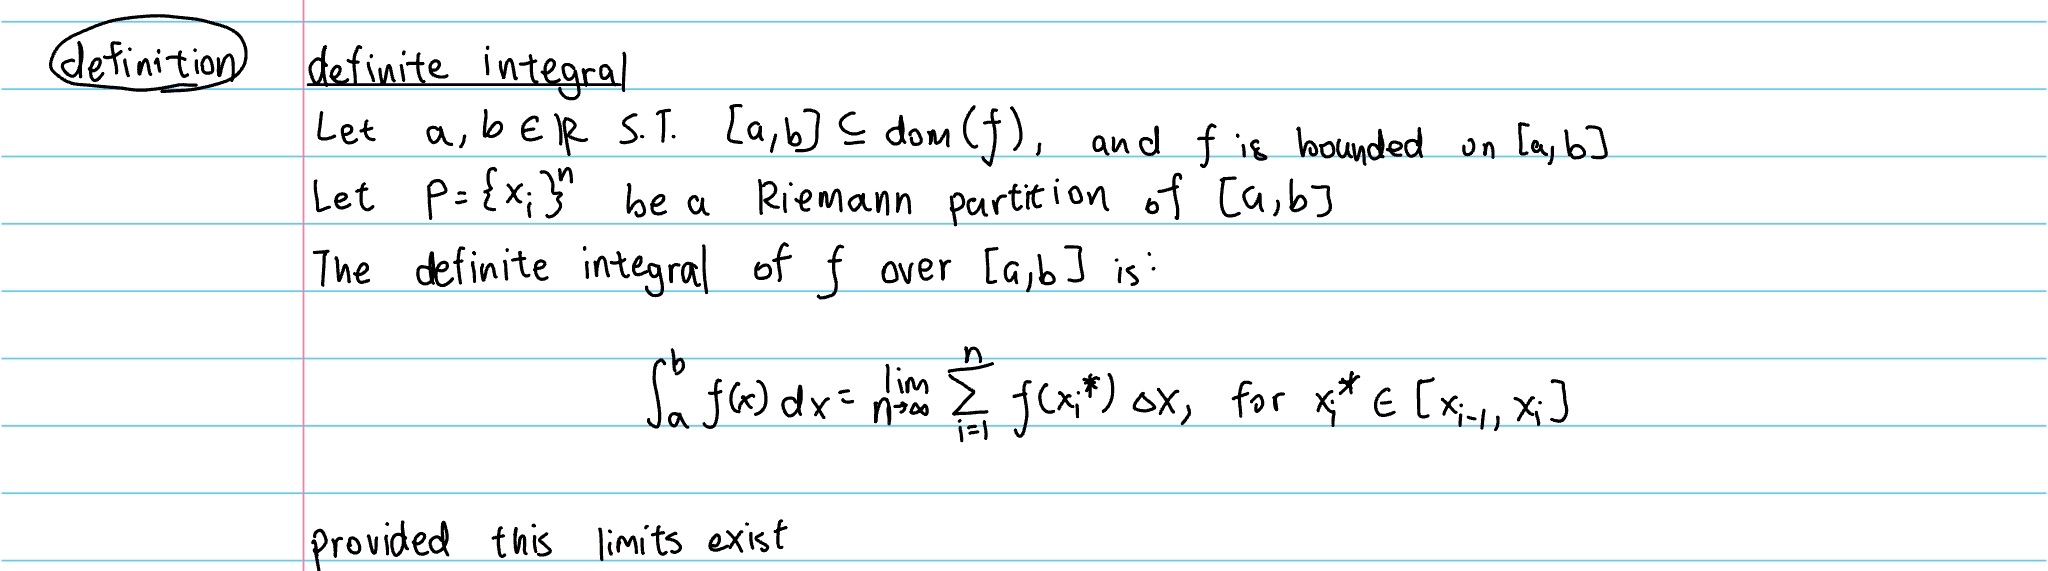 definition definite integral
Let a, b ∈ ℝ S.T. [a,b] ⊆ dom(f), and f is bounded on [a,b]
Let P = {x_i}^n be a Riemann partition of [a,b]
The definite integral of f over [a,b] is:
∫_a^b f(x) dx = lim_{n→∞} ∑_{i=1}^n f(x_i*) △x, for x_i* ∈ [x_{i-1}, x_i]
provided this limits exist